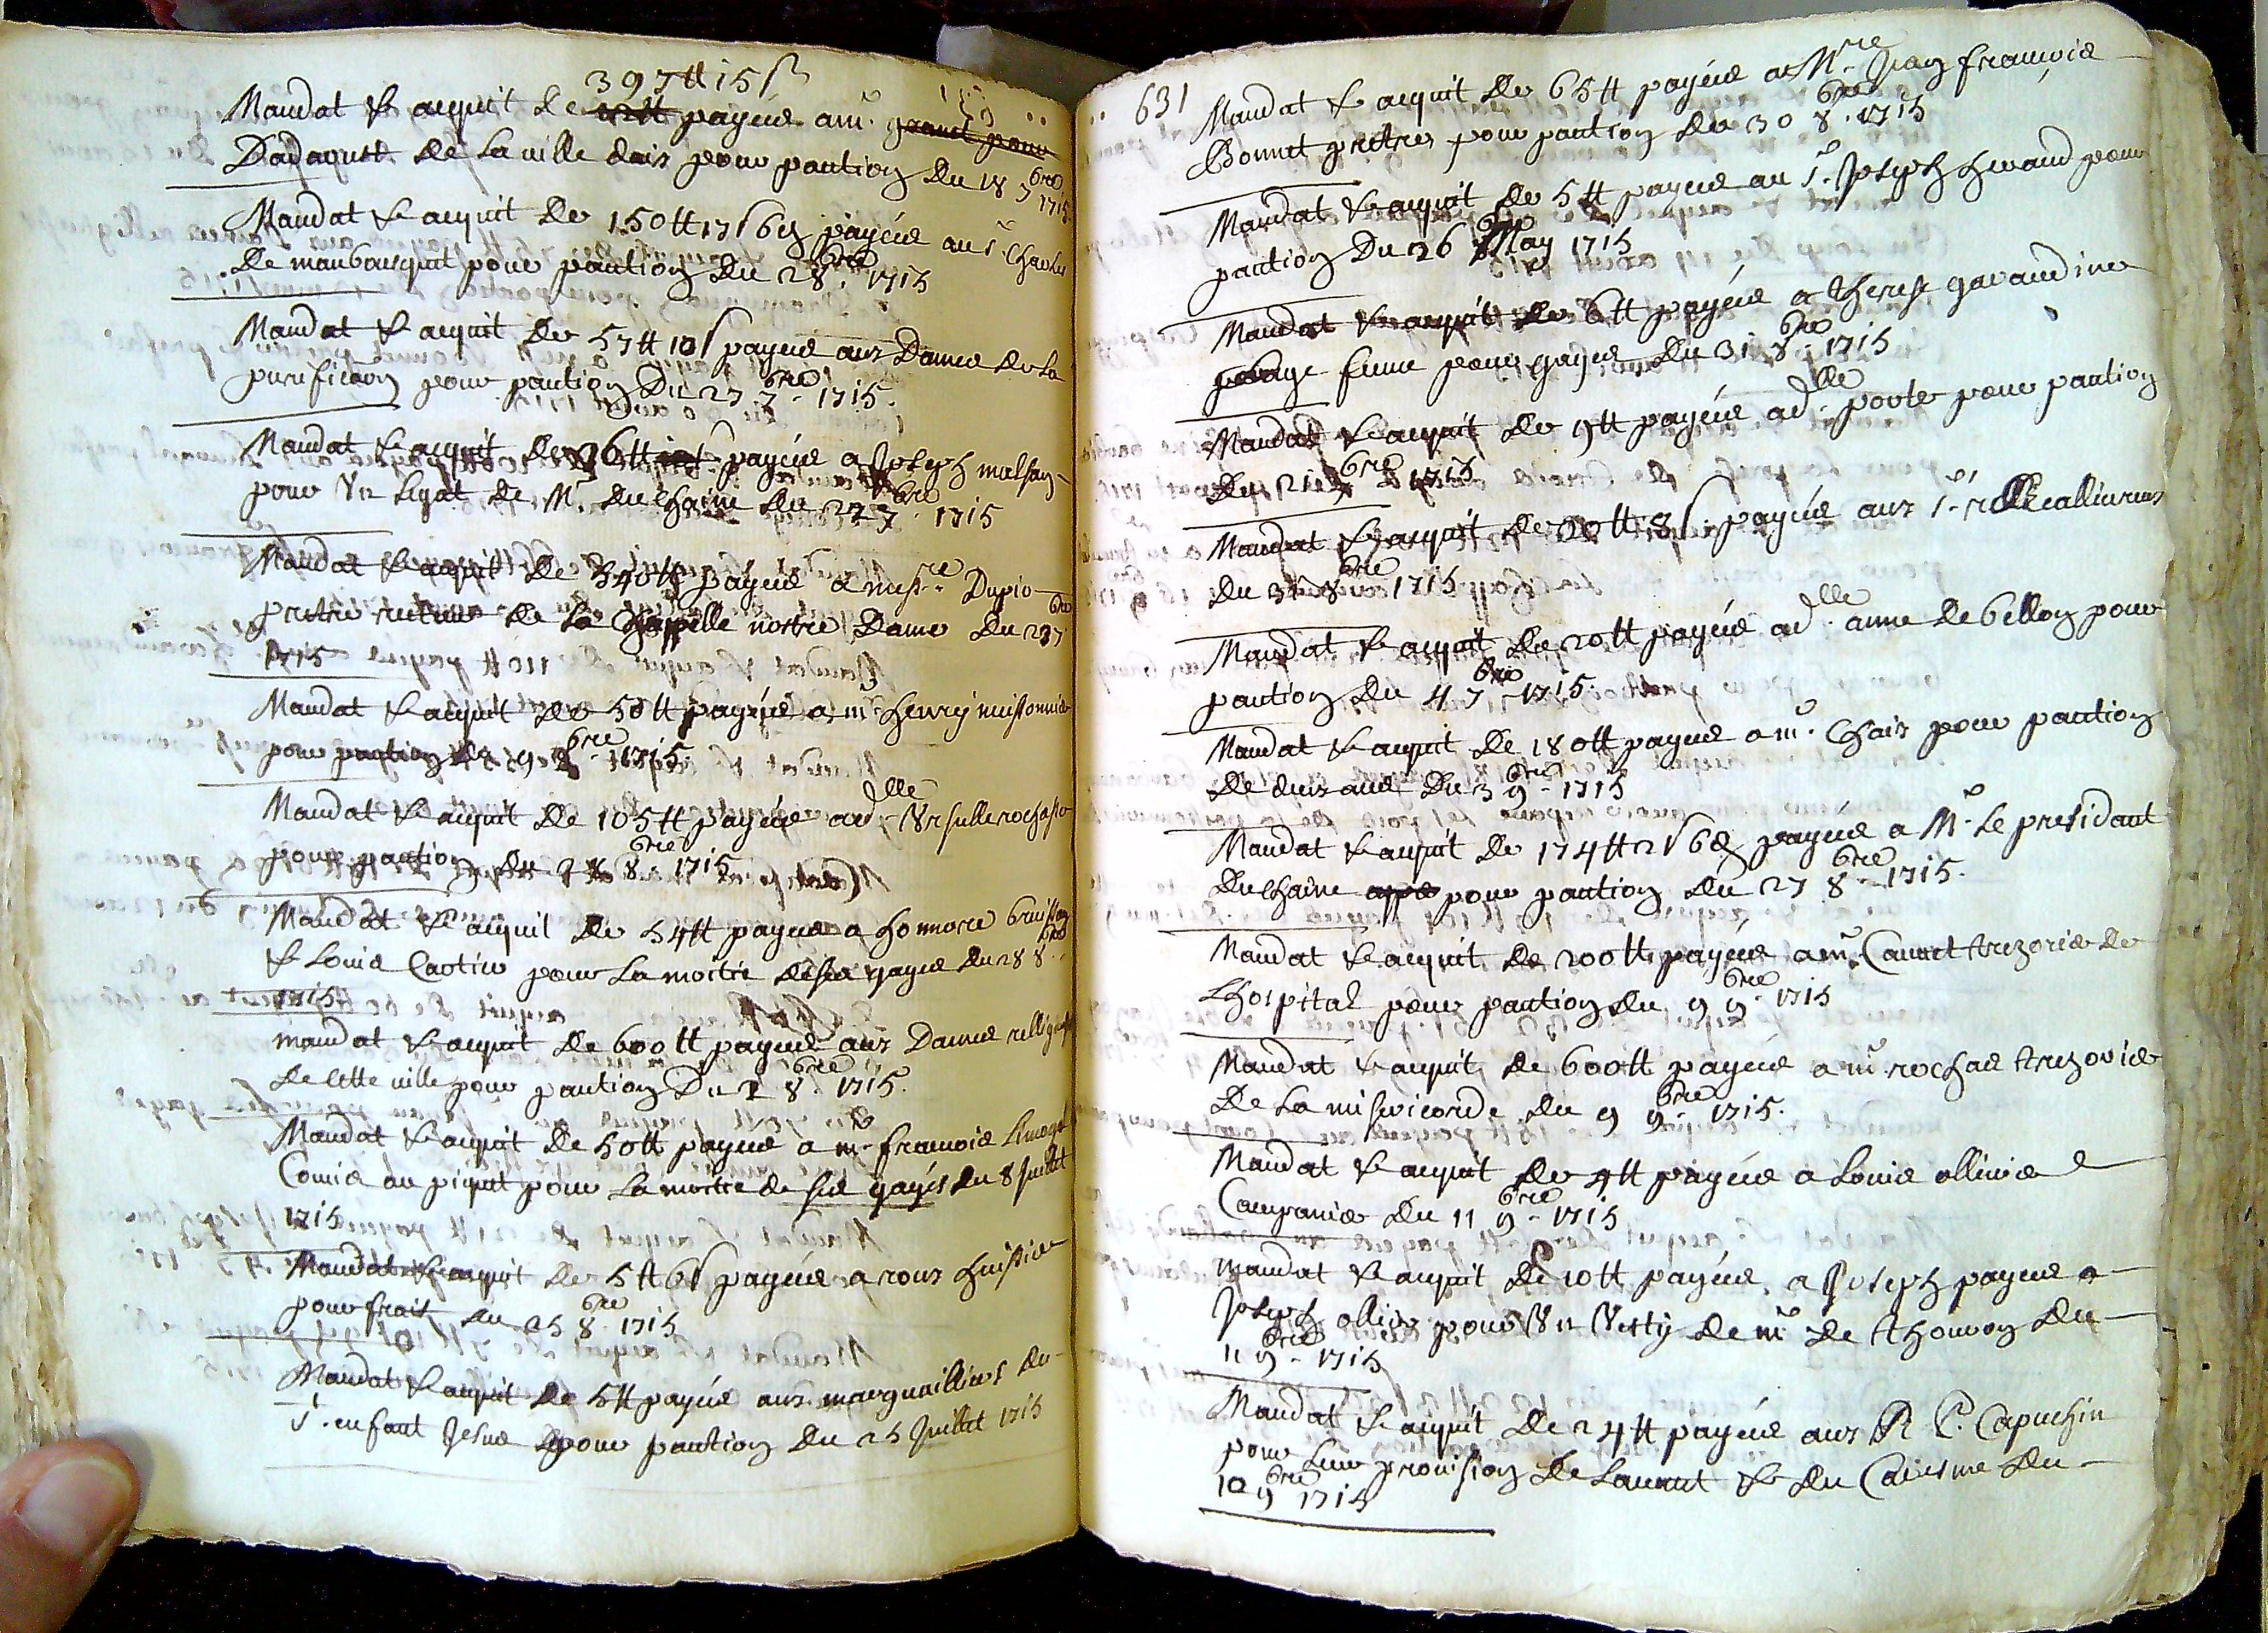 397 tt 15 s
Mandat & acquit de payées a mr.
Dadaoust de la ville daix pour pantion du 18 7bre 1715
Mandat & acquit de 150 tt 17 s 6 d payées au sr Charles
de maubousquet pour pantion du 28. 1715
Mandat & acquit de 57 tt 10 s payees aux Dames de la
purification pour pantion du 27 7bre 1715.
Mandat & acquit de 36 tt payées a Joseph
pour Vn legat de Mr. du Chaine du 27 7bre 1715
Mandat & acquit de 340 tt payées a messre Dupio
pretre recteur de la Chappelle nostre Dame du 23 7bre
1715
Mandat & acquit de 50 tt payées a mr henry
pour pantion du 9 8bre 1715
Mandat & acquit de 105 tt payées a dlle Vrsulle rochasse
pour pantion du 8bre 1715
Mandat & acquit de 54 tt payees a honnore
& Louis Caotier pour la moitie de ses gages du 28 8bre
1715
mandat & acquit de 600 tt payees aux Dames
de cette ville pour pantion du 2 8bre 1715.
Mandat & acquit de 50 tt payees a mr francois
Comis au piquet pour la moitie de ses gages du 8 Juillet
1715
Mandat & acquit de 5 tt 6 s payées a roux huissier
pour frais du 25 8bre 1715
Mandat & acquit de 5 tt payées aux marguilliers du
St. enfant Jesus pour pantion du 25 Juillet 1715
631
Mandat & acquit de 65 tt payées a Mre Jean francois
Bonnet pretre pour pantion du 30 8bre 1715
Mandat & acquit de 5 tt payees au Sr. Joseph pour
pantion du 26 May 1715
Mandat & acquit de 6 tt payées a therese gavaudine
sage feme pour gages du 31 8bre 1715
Mandat & acquit de 9 tt payées a dlle porte pour pantion
du 21 1715
Mandat & acquit de 8 s payées aux
du 31 8bre 1715
Mandat & acquit de 20 tt payées a dlle anne de bellon pour
pantion du 4 7bre 1715.
Mandat & acquit de 180 tt payees a mr. Chaix pour pantion
de deux ans du 3 9bre 1715
Mandat & acquit de 174 tt 2 s 6 d payées a Mr le presidant
du Chaine pour pantion du 27 8bre 1715.
Mandat & acquit de 200 tt payées a mr. Cannet trezorier de
Lhospital pour pantion du 9 9bre 1715
Mandat & acquit de 600 tt payées a mr rochas trezorier
de la misericorde du 9 9bre 1715.
Mandat & acquit de 4 tt payées a Louis ollivier
Campanier du 11 9bre 1715
Mandat & acquit de 10 tt payées a Joseph payees a
Joseph ollivier pour Vn Vesty de mr de thouron du
11 9bre 1715
Mandat & acquit de 24 tt payées aux R P. Capuchin
pour leur provision de Lauant & du Caresme du
10 9bre 1715